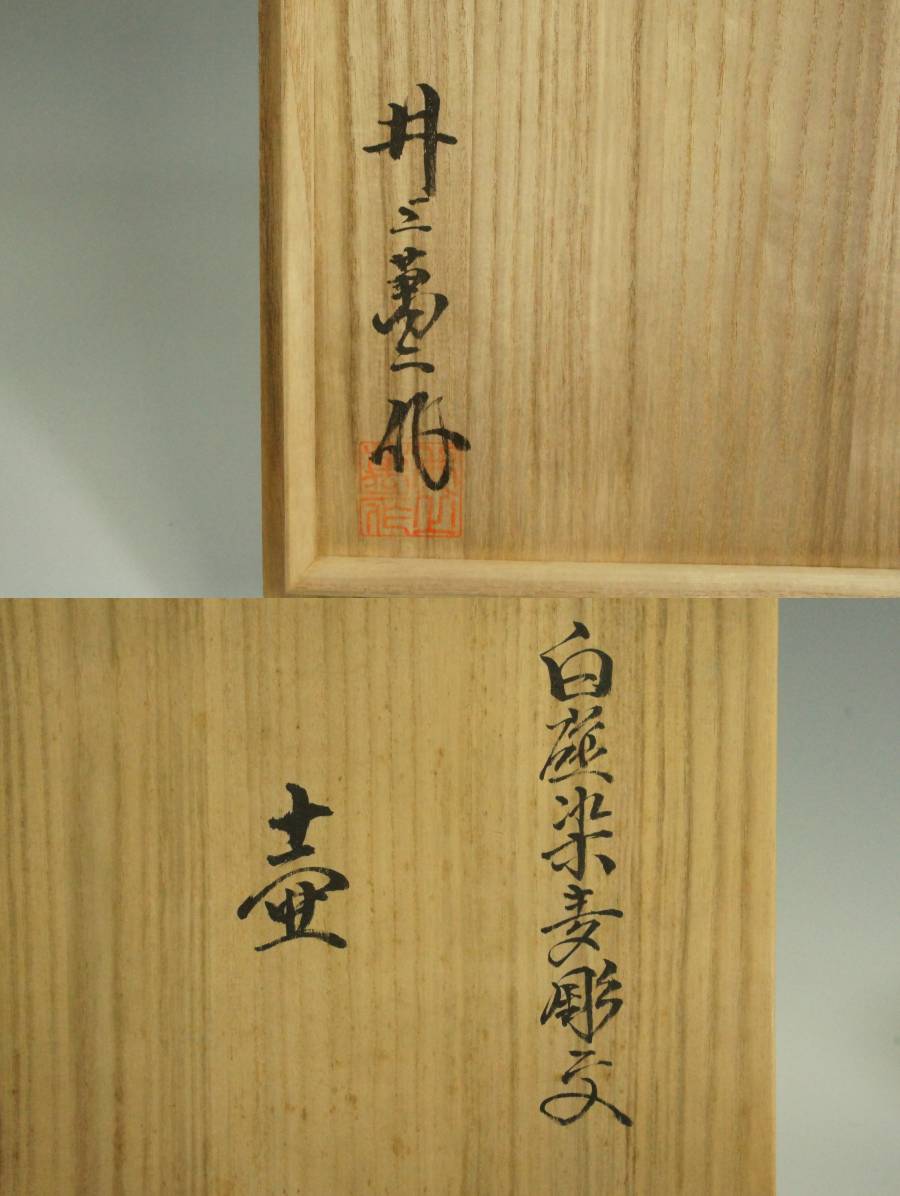 井上萬二作
白磁染麦彫文
壷